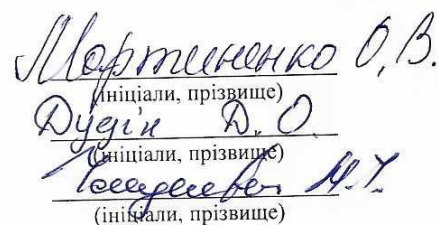 Мартиненко О.В.
(ініціали, прізвище)
Дудік Д.О.
(ініціали, прізвище)
(ініціали, прізвище)